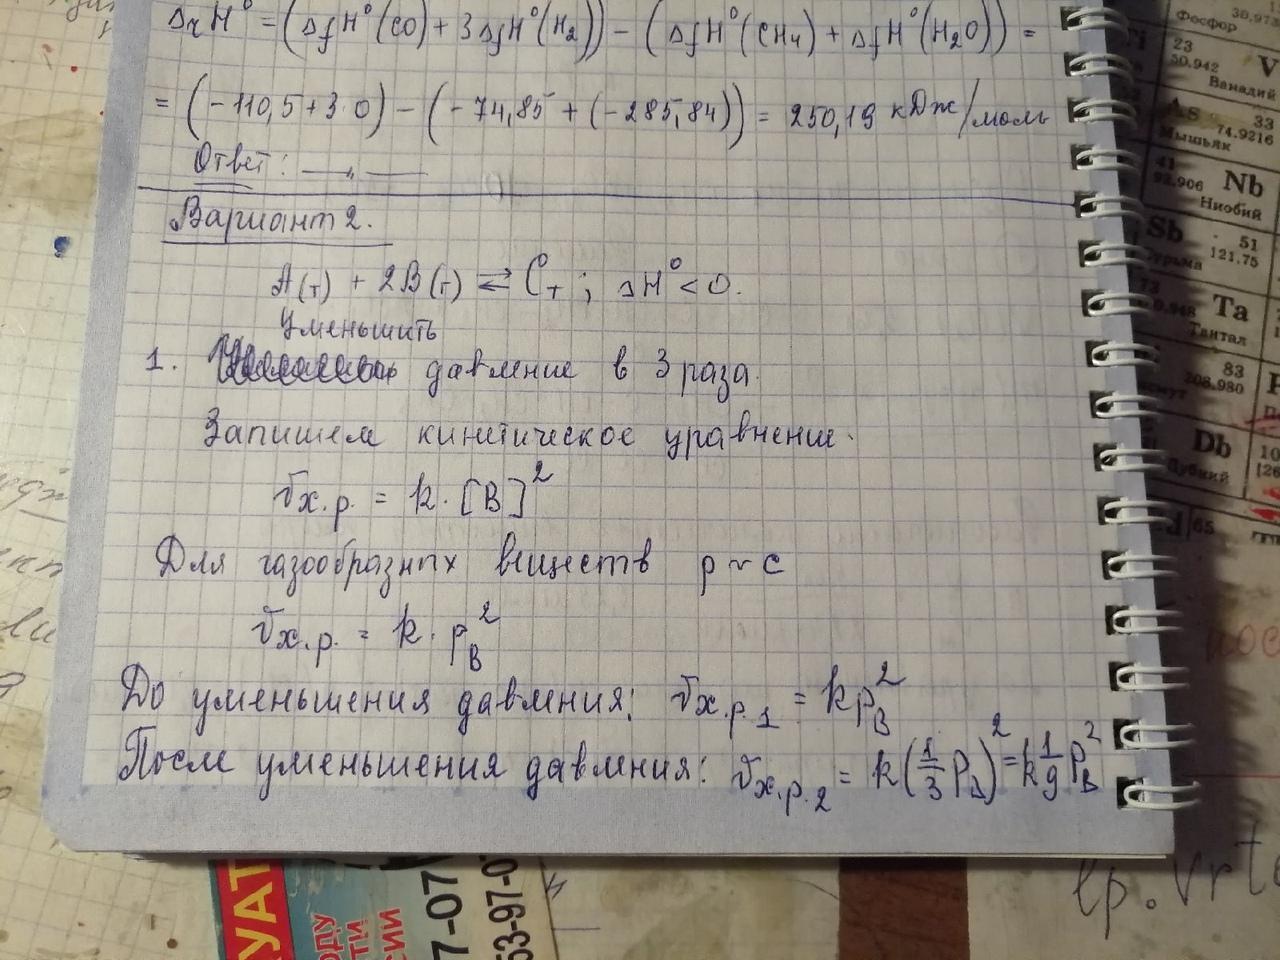 ΔrH° = (ΔfH°(CO) + 3ΔfH°(H₂)) − (ΔfH°(CH₄) + ΔfH°(H₂O)) =
= (−110,5 + 3·0) − (−74,85 + (−285,84)) = 250,19 кДж/моль
Ответ: —„—
Вариант 2.
A(т) + 2B(г) ⇄ Cт ; ΔH° < 0.
Уменьшить
1. давление в 3 раза.
Запишем кинетическое уравнение.
Vх.р. = k · [B]²
Для газообразных веществ p ~ c
Vх.р. = k · pB²
До уменьшения давления: Vх.р.1 = kpB²
После уменьшения давления: Vх.р.2 = k(1/3 pB)² = k 1/9 pB²
Фосфор
23
50.942
V
Ванадий
As
33
74.9216
Мышьяк
41
92.906
Nb
Ниобий
Sb
51
121.75
73
Ta
Тантал
83
208.980
Db
Дубний
65
УАТ
7-07
53-97-0